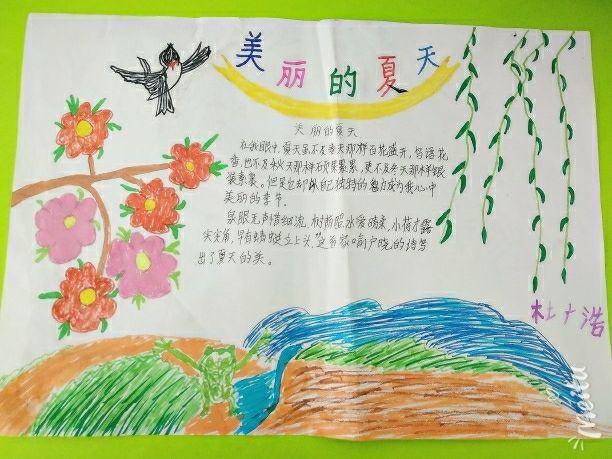 美丽的夏天
美丽的夏天
在我眼中,夏天虽不及春天那样百花盛开,鸟语花
香,也不及秋天那样硕果累累,更不及冬天那样银
装素裹。但夏也却以自己独特的魅力成为我心中
美丽的季节。
泉眼无声惜细流,树荫照水爱晴柔,小荷才露
尖尖角,早有蜻蜓立上头,这首家喻户晓的诗写
出了夏天的美。
杜广浩
meitu